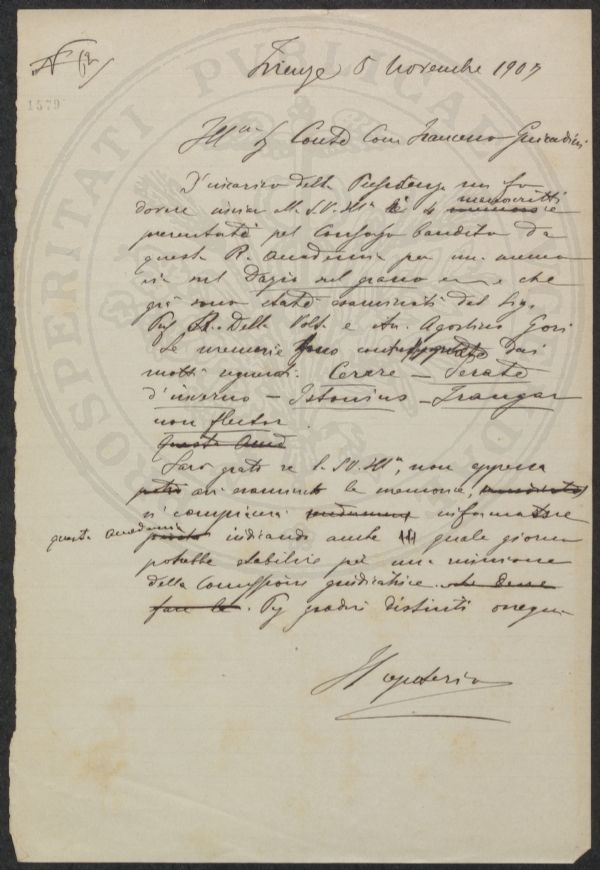 N 62
1579
Firenze 5 Novembre 1907
Ill.mo Sg Conte Com Francesco Guicciardini
D'incarico della Presidenza mi fo
dovere inviar alla S.V. Ill.ma le 4 memorie manoscritti
presentate pel Consorso bandito da
questa R. Accademia per una memo
ria sul Dazio sul grano e che
già sono state esaminati dal Sig.
Prof R. Della Volta e Av. Agostino Gori
Le memorie sono dai
motti seguenti: Cerere – Serate
d'inverno – Istonius – Frangar
non flectar.
Questa Accad
Sarò grato se la S.V. Ill.ma, non appena
avrà esaminato le memorie,
si compiacerà informare
questa Accademia indicando anche quale giorno
potrebbe stabilire per una riunione
della Commissione giudicatrice. che deve
fare la. Pg gradire distinti ossequi